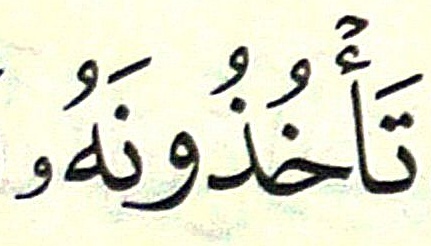 تَأۡخُذُونَهُۥ